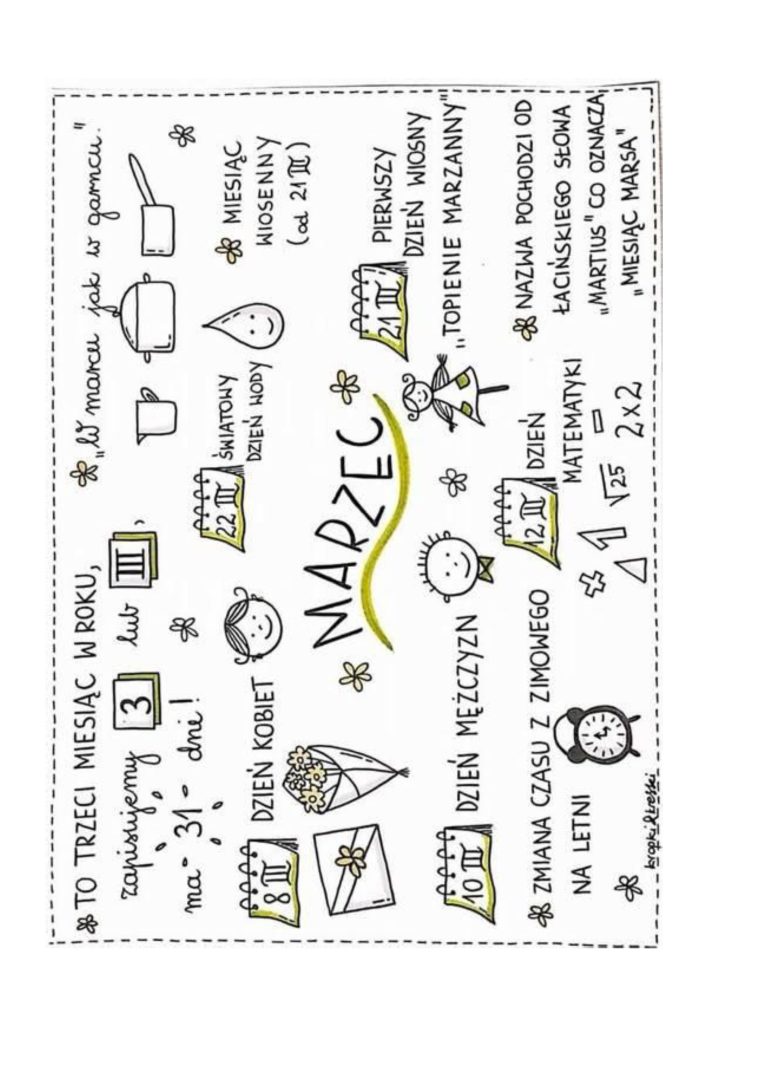 TO TRZECI MIESIĄC W ROKU,
zapisujemy 3 lub III,
ma - 31 - dni!
"W marcu jak w garncu."
8 III DZIEŃ KOBIET
22 III ŚWIATOWY
DZIEŃ WODY
MIESIĄC
WIOSENNY
(od 21 III)
MARZEC
21 III PIERWSZY
DZIEŃ WIOSNY
"TOPIENIE MARZANNY"
10 III DZIEŃ MĘŻCZYZN
12 III DZIEŃ
MATEMATYKI
+ 1 √25 - 2x2
ZMIANA CZASU Z ZIMOWEGO
NA LETNI
NAZWA POCHODZI OD
ŁACIŃSKIEGO SŁOWA
"MARTIUS" CO OZNACZA
"MIESIĄC MARSA"
kropki&kreski